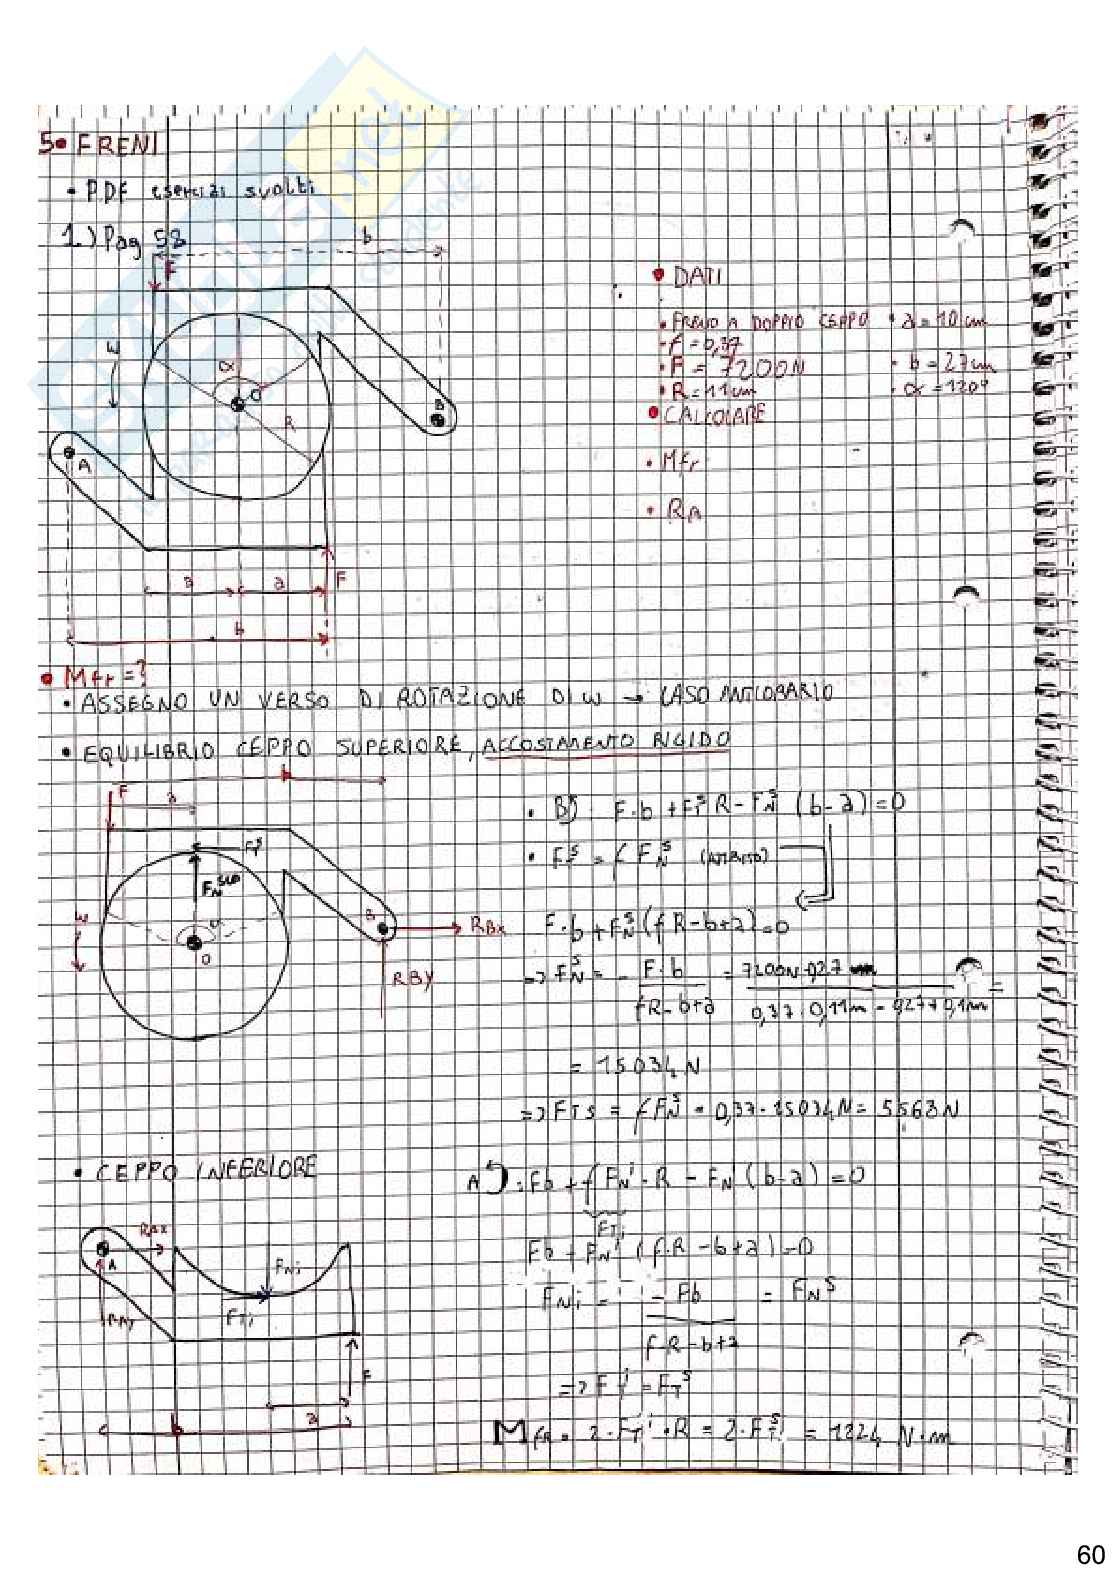 5• FRENI
• PDF esercizi svolti
1.) Pag 58
b
F
ω
α
O
R
B
A
a
a
F
b
• DATI
• FRENO A DOPPIO CEPPO
• a = 10 cm
• f = 0,37
• F = 7200N
• b = 27cm
• R = 11cm
• α = 120°
• CALCOLARE
• Mfr
• RA
• Mfr = ?
• ASSEGNO UN VERSO DI ROTAZIONE DI ω → CASO ANTIORARIO
• EQUILIBRIO CEPPO SUPERIORE, ACCOSTAMENTO RIGIDO
b
F
a
ω
α
O
B
RBx
RBY
• B) : F·b + FTS R − FNS (b − a) = 0
• FTS = f FNS (ATTRITO)
F·b + FNS (fR − b + a) = 0
=> FNS = − F·b / fR − b + a = 7200N·0,27 m / 0,37 · 0,11m − 0,27 + 0,1m =
= 15034 N
=> FTS = f FNS = 0,37 · 15034N = 5563N
• CEPPO INFERIORE
RAx
A
RAY
FNi
FTi
F
a
b
A) : Fb + f FNi · R − FNi (b − a) = 0
FTi
Fb + FNi (f·R − b + a) = 0
FNi = − Fb / f·R − b + a = FNS
=> FTi = FTS
Mfr = 2·FTi · R = 2·FTS = 1224 N·m
60